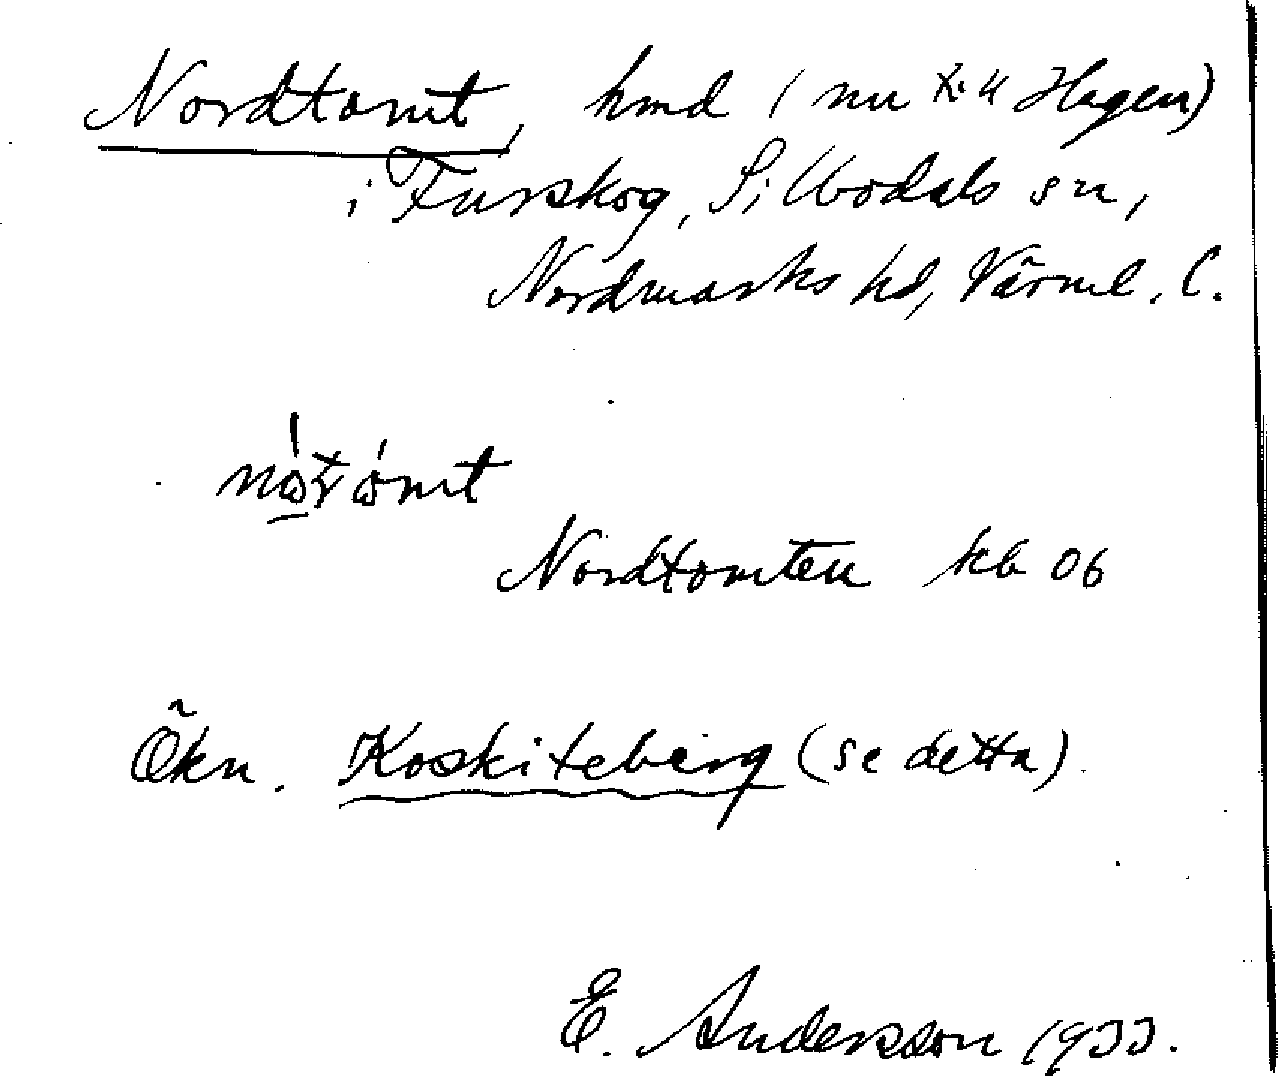 Nordtomt, hmd (nu till Hagen)
i Furskog, Silbodals sn,
Nordmarks hd, Värml. l.
Nordtomten kb 06
Ökn. Koskiteberg (se detta)
E. Andersson 1933.